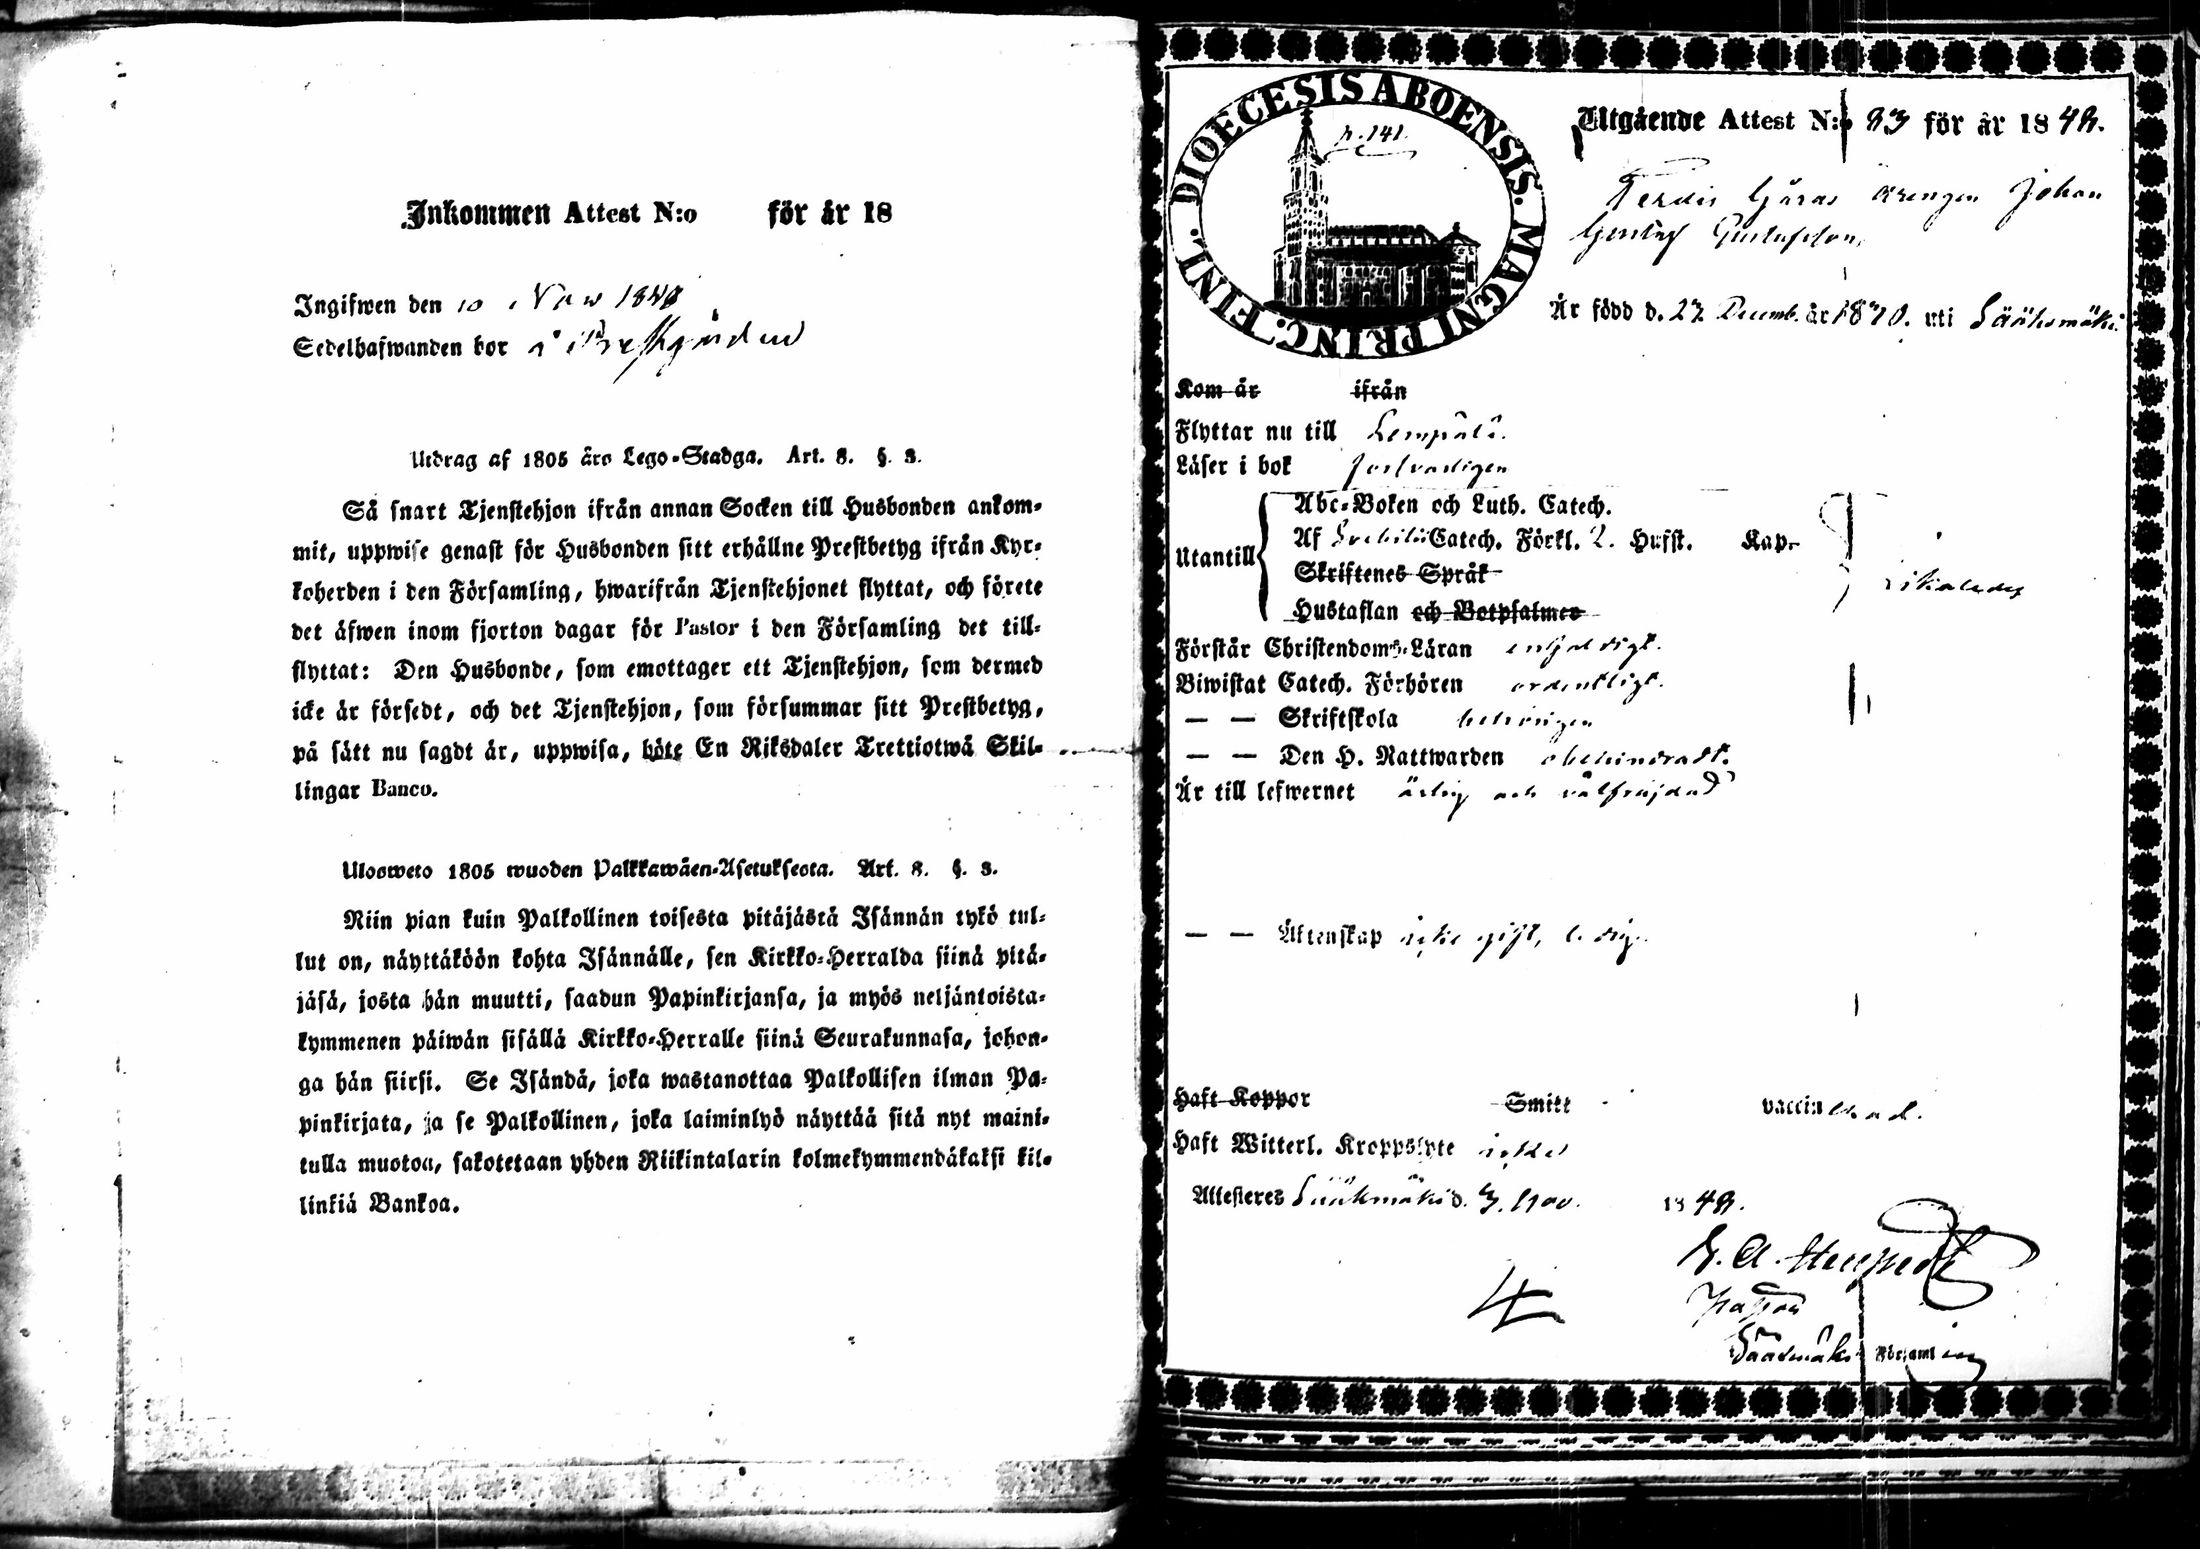 Inkommen Attest N:o för år 18
Ingifwen den 10 Nov 1848
Sedelhafwanden bor i Prestgården
Utdrag af 1805 års Lego-Stadga. Art. 8. §. 3.
Så snart Tjenstehjon ifrån annan Socken till Husbonden ankom-
mit, uppwise genast för Husbonden sitt erhållne Prestbetyg ifrån Kyr-
koherden i den Församling, hwarifrån Tjenstehjonet flyttat, och förete
det äfwen inom fjorton dagar för Pastor i den Församling det till-
flyttat: Den Husbonde, som emottager ett Tjenstehjon, som dermed
icke är försedt, och det Tjenstehjon, som försummar sitt Prestbetyg,
på sätt nu sagdt är, uppwisa, böte En Riksdaler Trettiotwå Skil-
lingar Banco.
Ulosweto 1805 wuoden Palkkawäen-Asetuksesta. Art. 8. §. 3.
Niin pian kuin Palkollinen toisesta pitäjästä Isännän tykö tul-
lut on, näyttäköön kohta Isännälle, sen Kirkko-Herralda siinä pitä-
jäsä, josta hän muutti, saadun Papinkirjansa, ja myös neljäntoista-
kymmenen päiwän sisällä Kirkko-Herralle siinä Seurakunnasa, johon-
ga hän siirsi. Se Isändä, joka wastanottaa Palkollisen ilman Pa-
pinkirjata, ja se Palkollinen, joka laiminlyö näyttää sitä nyt maini-
tulla muotoa, sakotetaan yhden Riikintalarin kolmekymmendäkaksi kil-
linkiä Bankoa.
DIOECESIS ABOENSIS. MAGNI PRINC. FINL.
p. 141.
Utgående Attest N:o 83 för år 1848.
drengen Johan
Gustaf Gustafsson,
Är född d. 27 Decemb. år 18 uti Sääksmäki
Kom år ifrån
Flyttar nu till Lempälä.
Läser i bok försvarligen
Utantill
Abc-Boken och Luth. Catech.
Af Svebilii Catech. Förkl. 2. Hufst. Kap.
Skriftenes Språk
Hustaflan och Botpsalmer
Förstår Christendoms-Läran enfaldigt.
Biwistat Catech. Förhören ordentligt.
— — Skriftskola behörigen
— — Den H. Nattwarden obehindradt.
Är till lefwernet ärlig och välfrejdad
— — Äktenskap icke gift, ledig.
Haft Koppor Smitt vaccinerad.
Haft Witterl. Kroppslyte icke
Attesteras Sääksmäki d. 3. Nov. 1848.
Pastor
Sääksmäki Församling